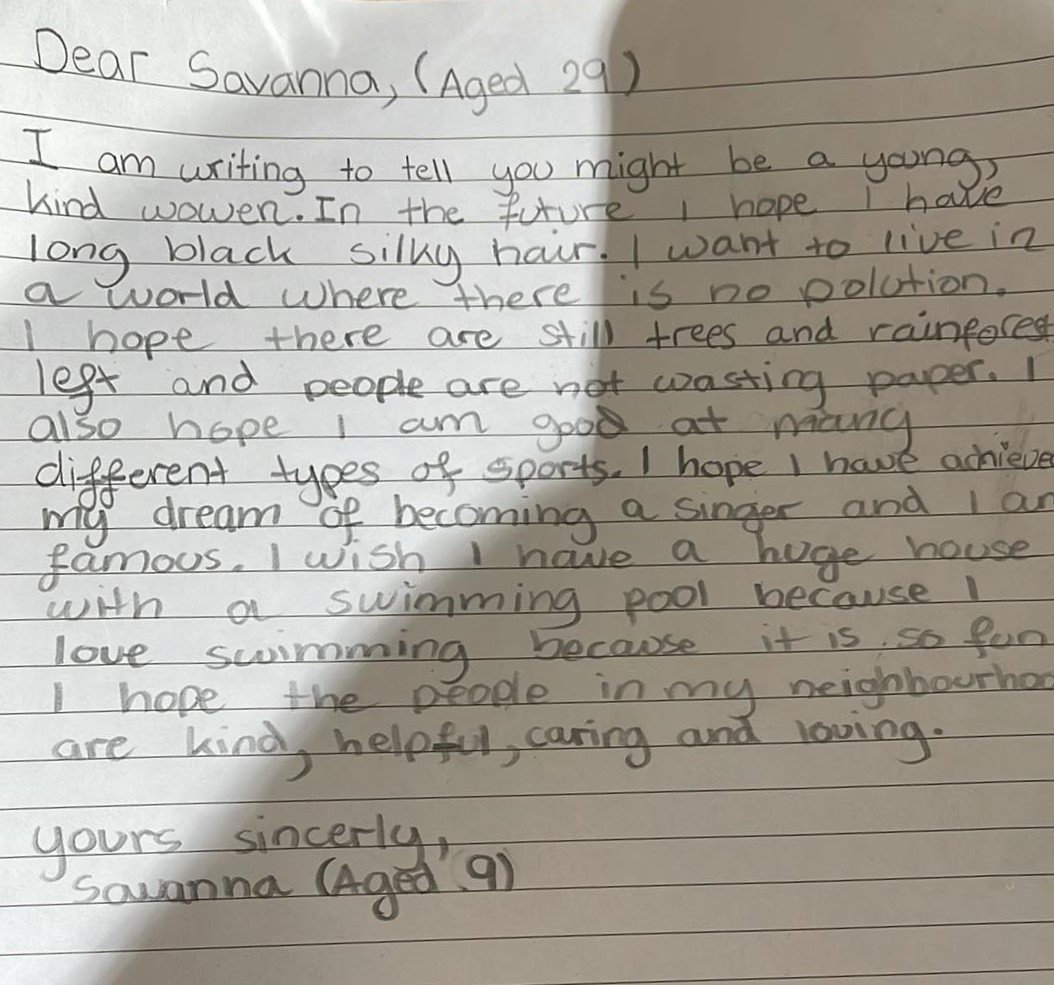 Dear Savanna, (Aged 29)
I am writing to tell you might be a young,
kind wowen. In the future I hope I have
long black silky hair. I want to live in
a world where there is no polution.
I hope there are still trees and rainforest
left and people are not wasting paper. I
also hope I am good at many
different types of sports. I hope I have achieve
my dream of becoming a singer and I am
famous. I wish I have a huge house
with a swimming pool because I
love swimming because it is so fun
I hope the people in my neighbourhoo
are kind, helpful, caring and loving.
yours sincerly,
Savanna (Aged 9)